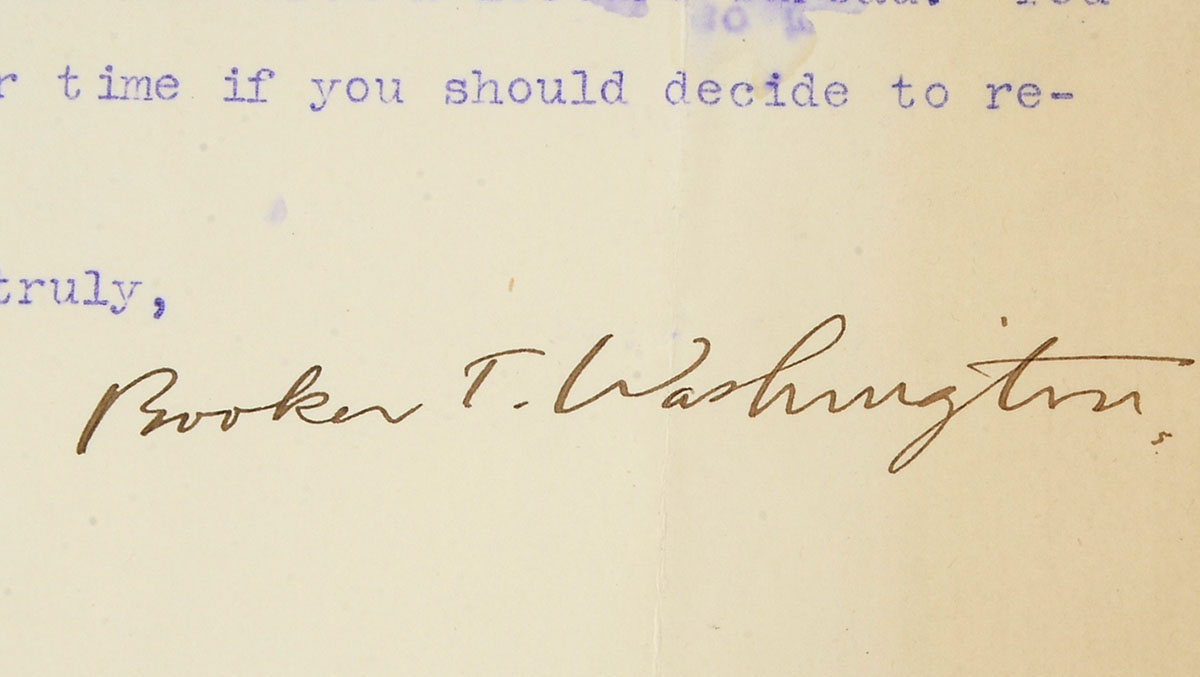 r time if you should decide to re-
truly,
Booker T. Washington.